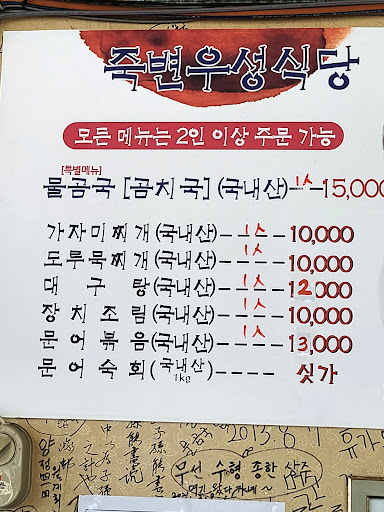 죽변우성식당
모든 메뉴는 2인 이상 주문 가능
[특별메뉴]
물곰국 [곰치국] (국내산)--1人-15,000
가자미찌개 (국내산)--1人--10,000
도루묵찌개 (국내산)--1人--10,000
대구탕 (국내산)--1人--12,000
장치조림 (국내산)--1人--10,000
문어볶음 (국내산)--1人--13,000
문어숙회 (국내산 1kg)---- 싯가
2013.8.
무선 수형 종한 상주